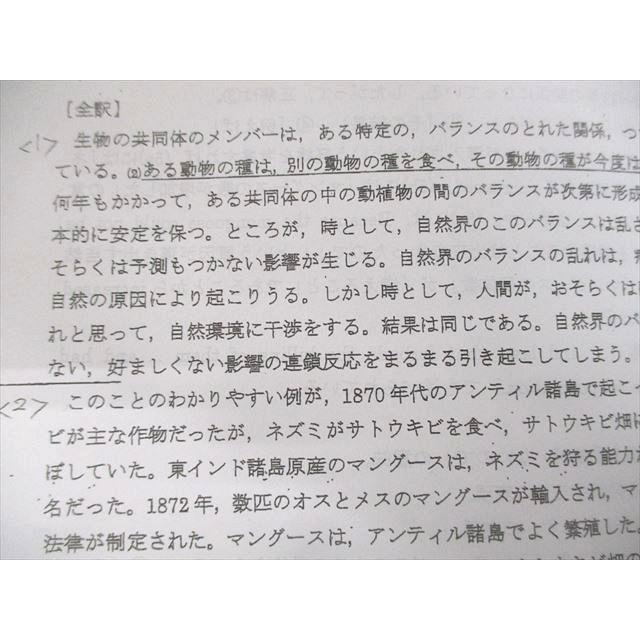 【全訳】
<1> 生物の共同体のメンバーは，ある特定の，バランスのとれた関係，つ
ている。(2)ある動物の種は，別の動物の種を食べ，その動物の種が今度は
何年もかかって，ある共同体の中の動植物の間のバランスが次第に形成
本的に安定を保つ。ところが，時として，自然界のこのバランスは乱さ
そらくは予測もつかない影響が生じる。自然界のバランスの乱れは，
自然の原因により起こりうる。しかし時として，人間が，おそらくは
れと思って，自然環境に干渉をする。結果は同じである。自然界のバ
ない，好ましくない影響の連鎖反応をまるまる引き起こしてしまう。
<2> このことのわかりやすい例が，1870年代のアンティル諸島で起こ
ビが主な作物だったが，ネズミがサトウキビを食べ，サトウキビ畑に
ぼしていた。東インド諸島原産のマングースは，ネズミを狩る能力が
名だった。1872年，数匹のオスとメスのマングースが輸入され，マ
法律が制定された。マングースは，アンティル諸島でよく繁殖した。